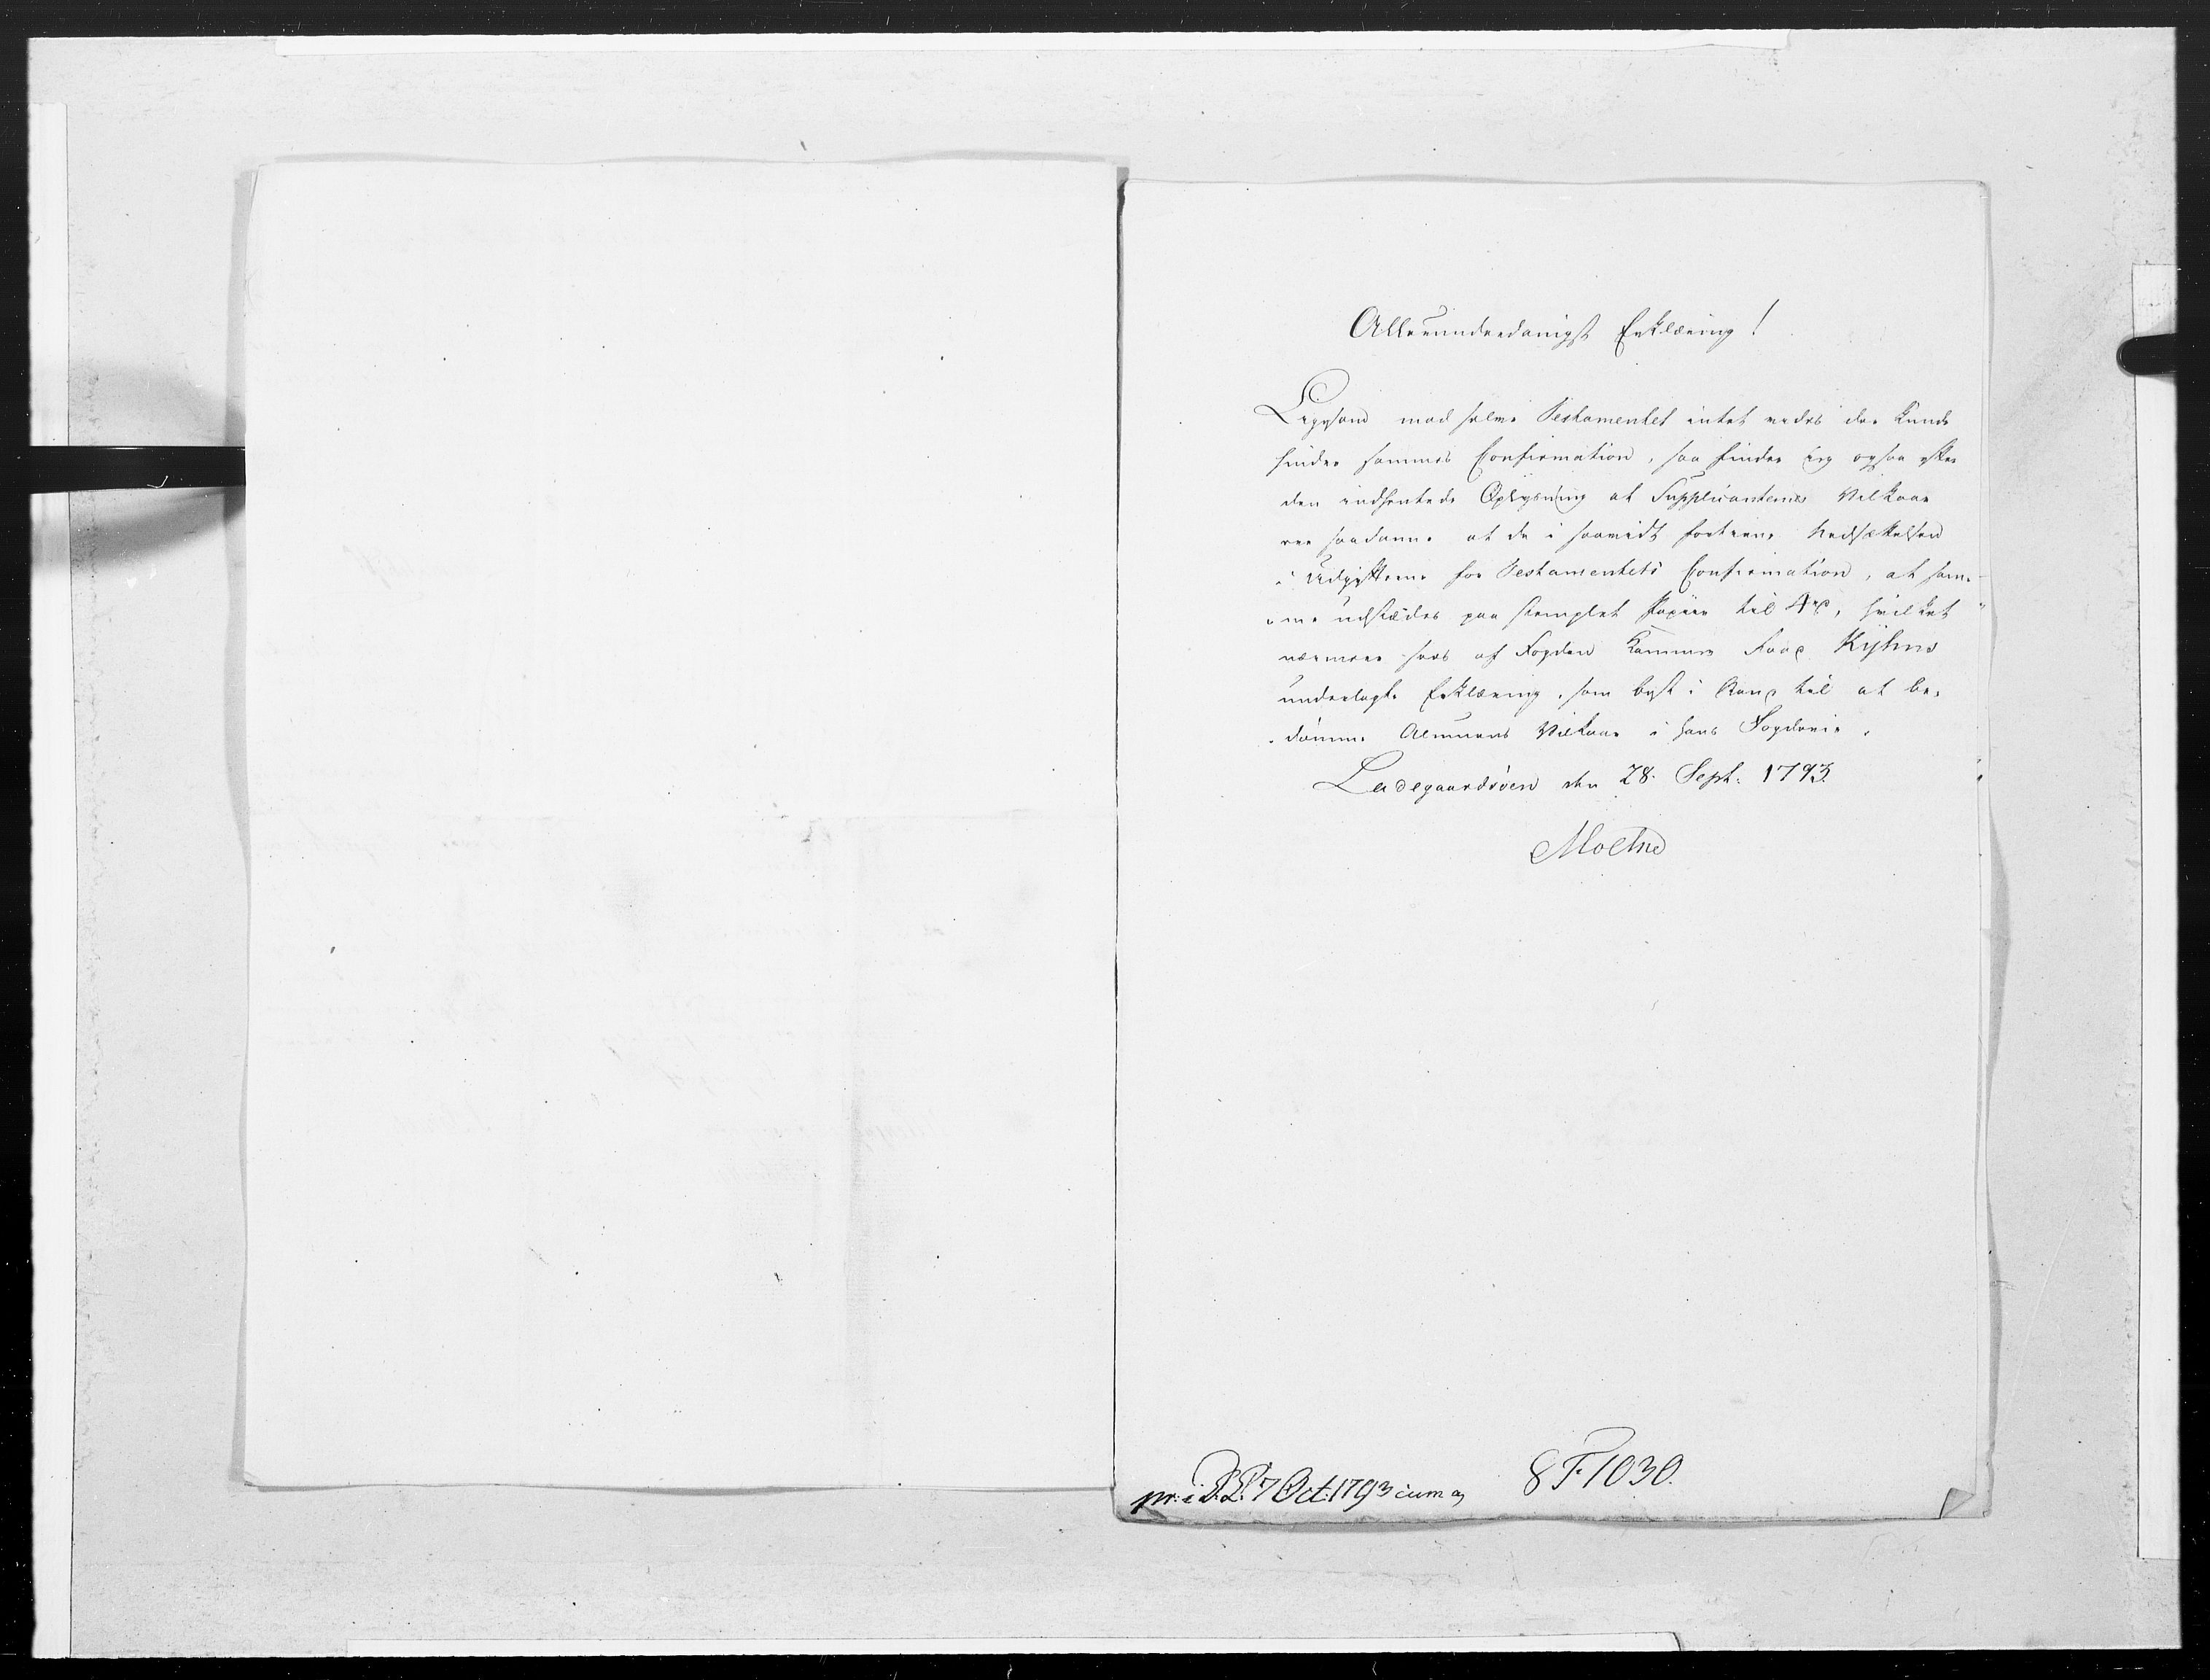 Allerunderdanigst Erklæring!
Ligesom mod selve Testamentet intet vides der kunde
hindre sammes Confirmation, saa finder jeg ogsaa efter
den indhentede Oplysning at Supplicanternes Vilkaar
ere saadanne at de i saavidt fortiene Nedsættelsen
i Udgifterne for Testamentets Confirmation, at sam-
me udstædes paa stemplet Papiir til 4 rd, hvilket
nærmere sees af Fogden Kammer Raad Kyhns
underlagte Erklæring, som best i Stand til at be-
dømme Almuens Vilkaar i hans Fogderie.
Ladegaardsöen den 28. Sept: 1793.
Moltke
pr: i D: C: 7 Oct: 1793 cum
8 F 1030.